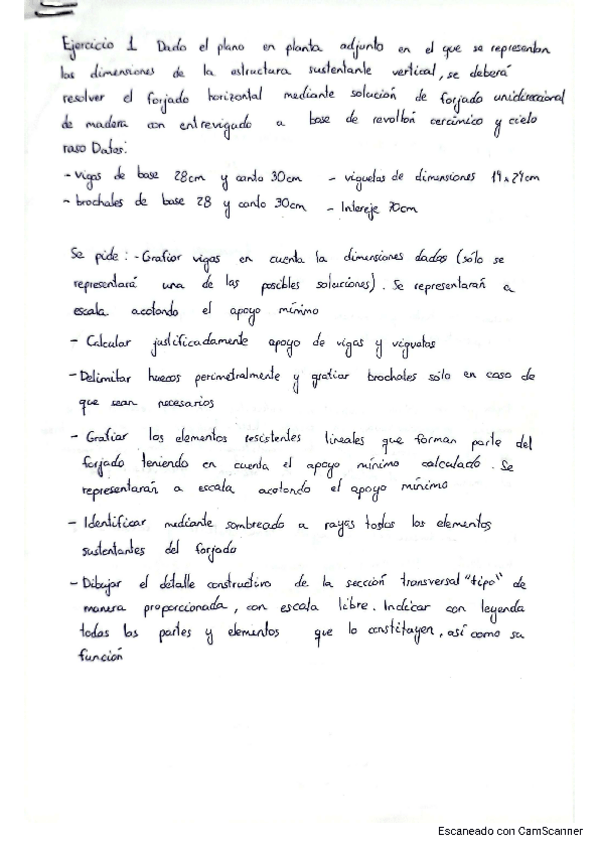 Ejercicio 1 Dado el plano en planta adjunto en el que se representan
las dimensiones de la estructura sustentante vertical, se deberá
resolver el forjado horizontal mediante solución de forjado unidireccional
de madera con entrevigado a base de revoltón cerámico y cielo
raso Datos:
- vigas de base 28cm y canto 30cm - viguetas de dimensiones 19x24cm
- brochales de base 28 y canto 30cm - Intereje 70cm
Se pide: - Grafiar vigas en cuenta la dimensiones dadas (sólo se
representará una de las posibles soluciones). Se representarán a
escala acotando el apoyo mínimo
- Calcular justificadamente apoyo de vigas y viguetas
- Delimitar huecos perimetralmente y grafiar brochales sólo en caso de
que sean necesarios
- Grafiar los elementos resistentes lineales que forman parte del
forjado teniendo en cuenta el apoyo mínimo calculado. Se
representarán a escala acotando el apoyo mínimo
- Identificar mediante sombreado a rayas todos los elementos
sustentantes del forjado
- Dibujar el detalle constructivo de la sección transversal "tipo" de
manera proporcionada, con escala libre. Indicar con leyenda
todas las partes y elementos que lo constituyen, así como su
función
Escaneado con CamScanner